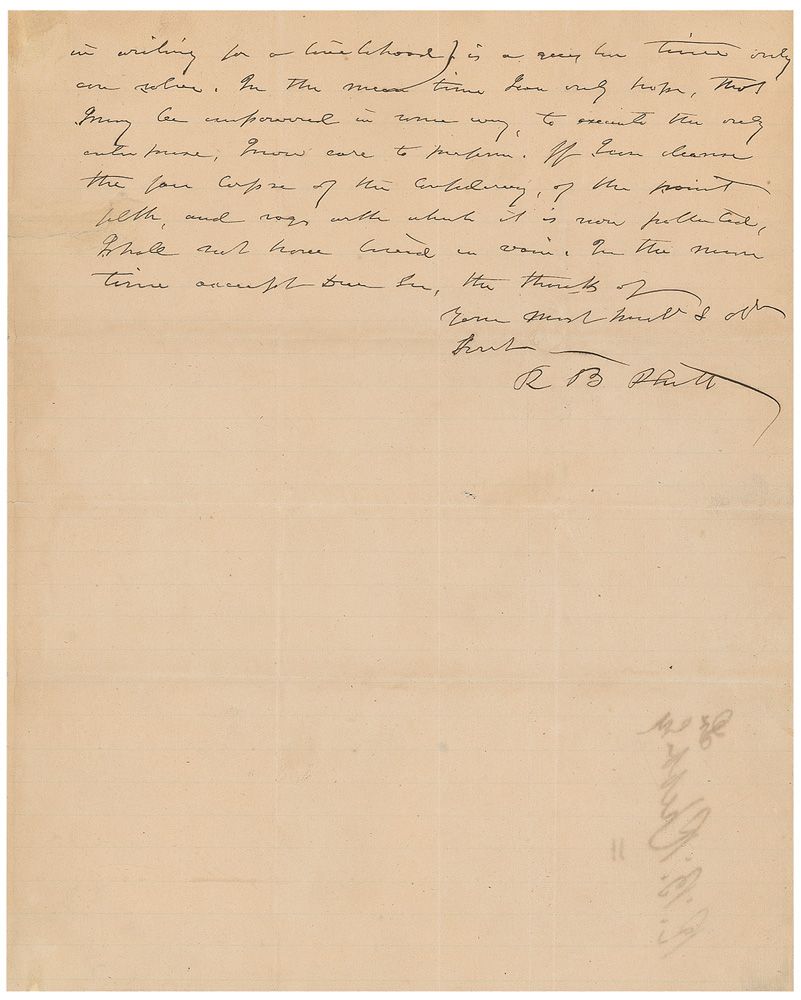 in writing for a livelihood} is a question time only
can solve. In the mean time I can only hope, that
I may be empowered in some way, to execute the only
enterprise, I now care to perform. If I can cleanse
the fair corpse of the Confederacy, of the paint
filth, and rags with which it is now polluted,
I shall not have lived in vain. In the mean
time accept Dear Sir, the thanks of
Your most humb & obt
Servt
R B Rhett